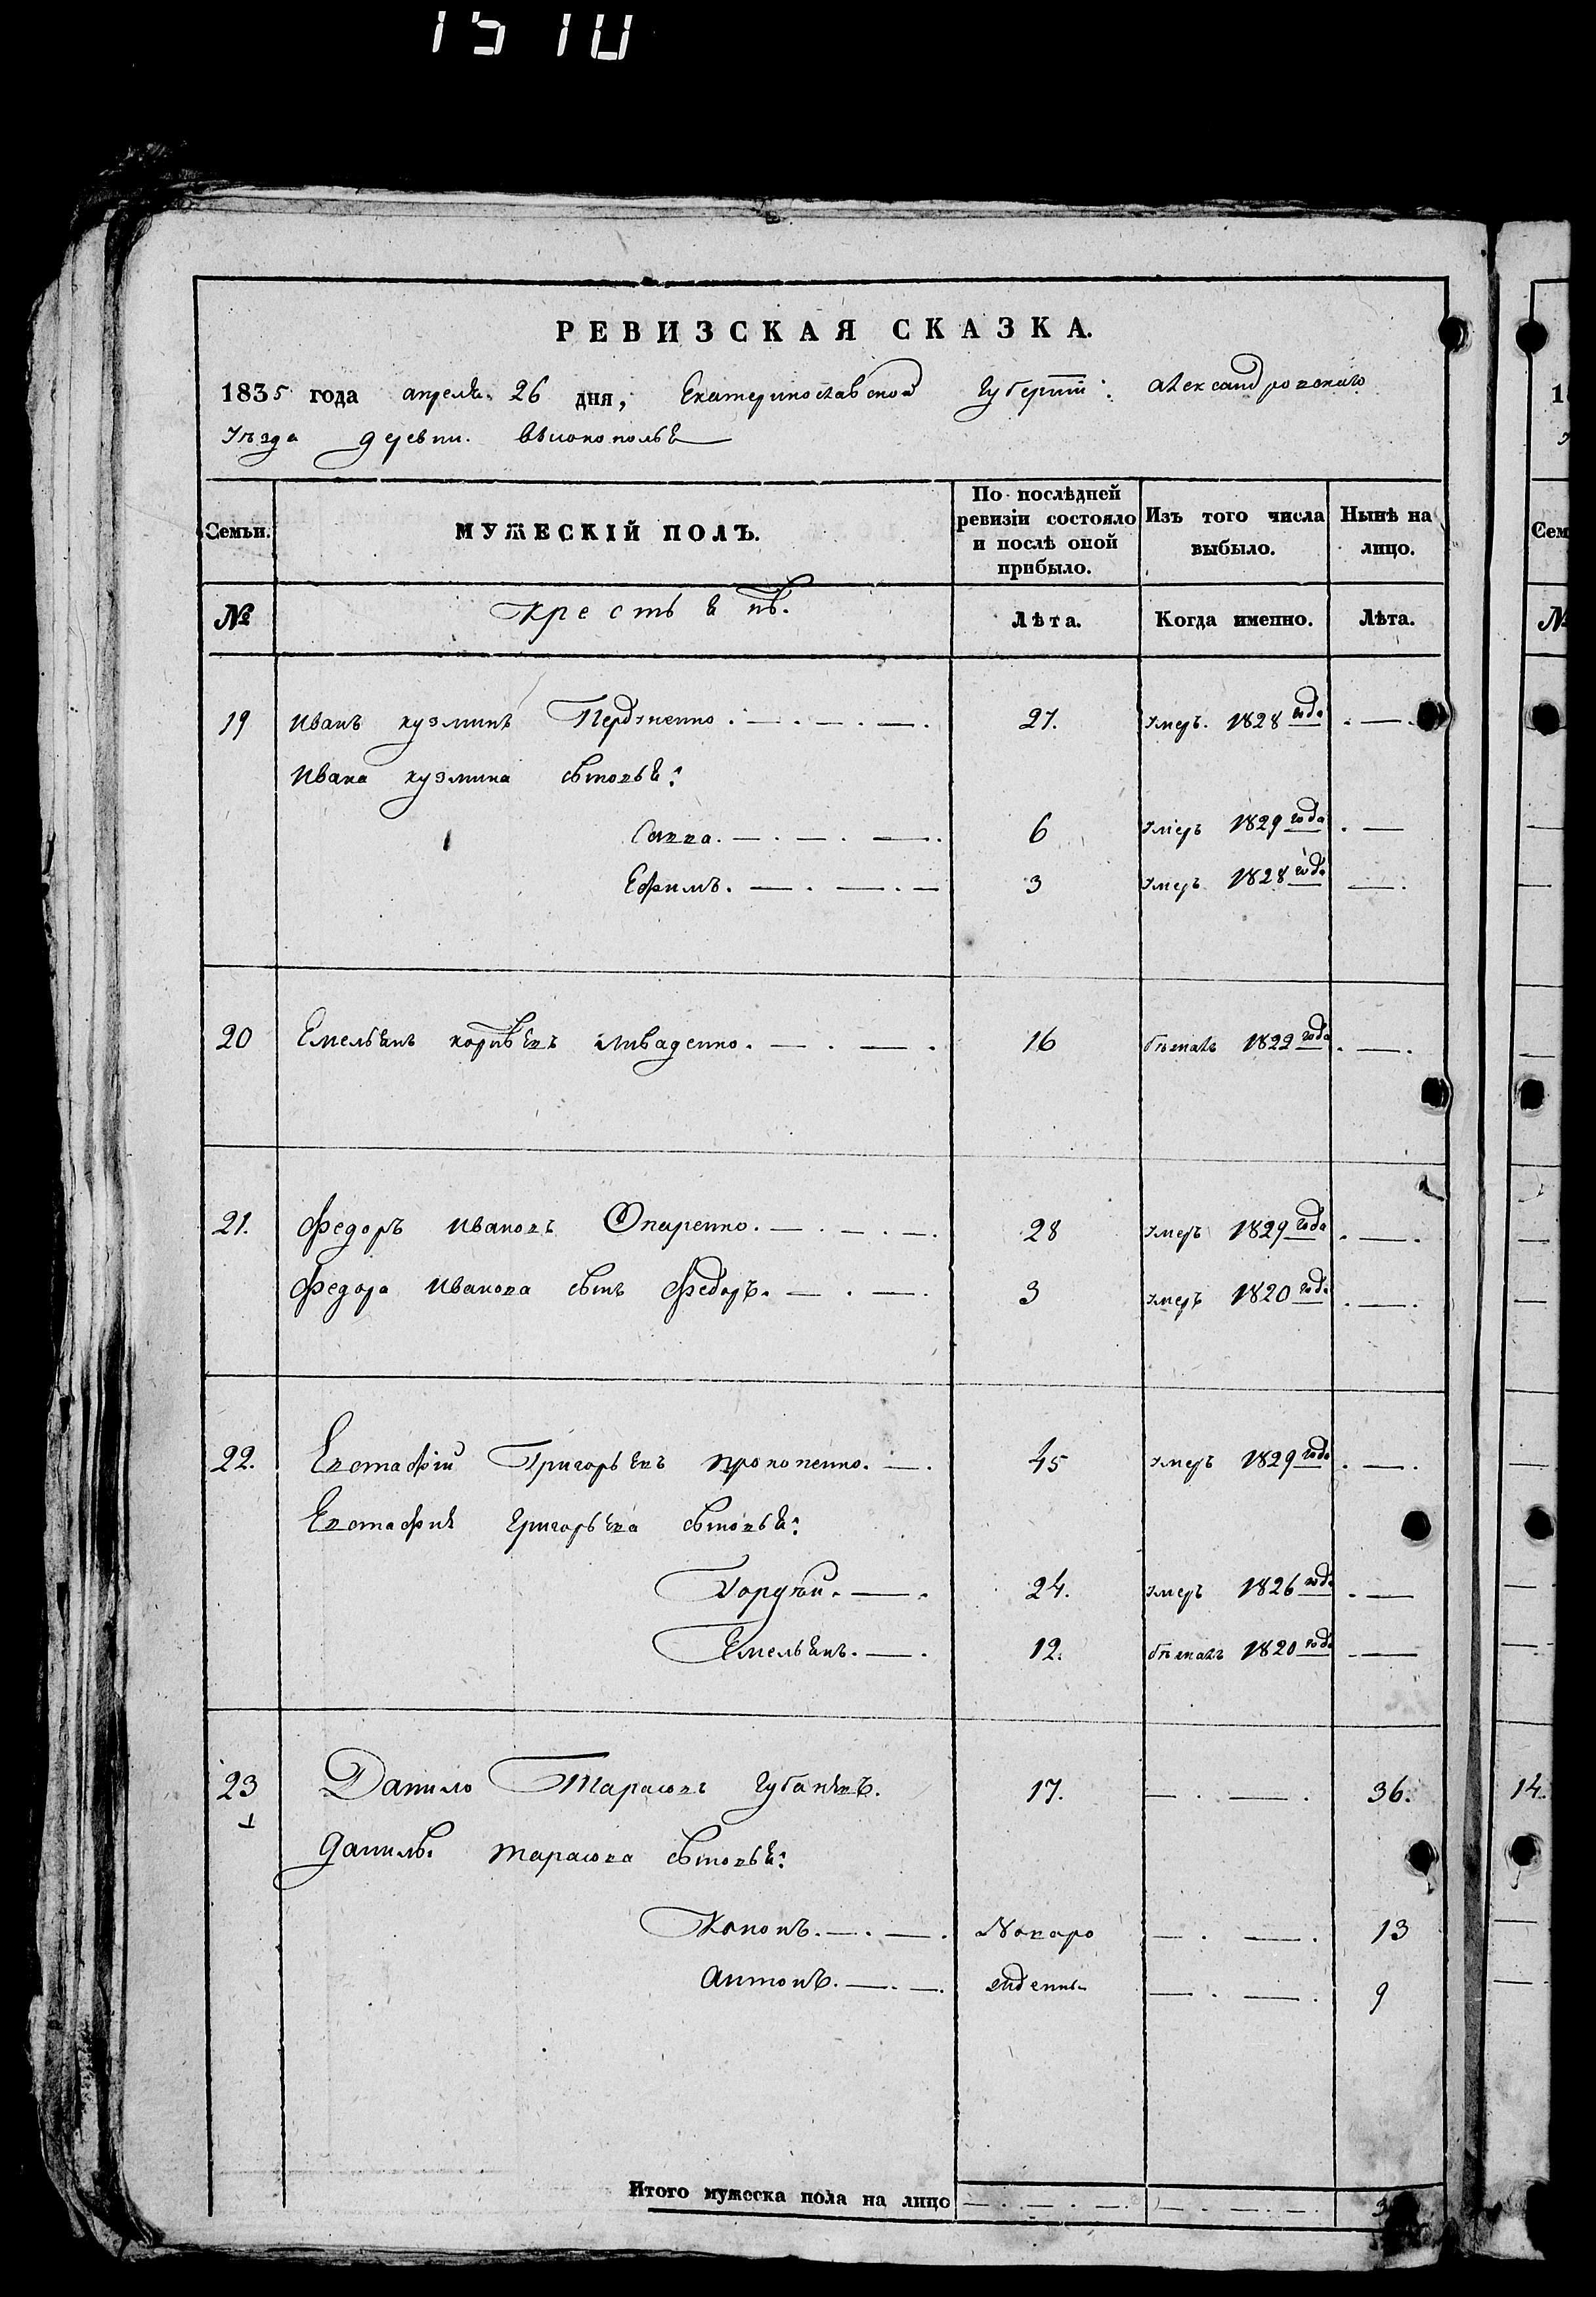 1510
РЕВИЗСКАЯ СКАЗКА.
1835 года апреля 26 дня, Екатеринославской Губернiи: Александровского
Уезда деревни. Высокополья
Семьи. МУЖЕСКІЙ ПОЛЪ. По послѣдней ревизіи состояло и послѣ оной прибыло. Изъ того числа выбыло. Нынѣ на лицо.
№ Крестьянъ. Лѣта. Когда именно. Лѣта.
19 Иванъ кузминъ 27. умеръ. 1828 года
Ивана кузмина сыновья:
Савва. 6 умеръ 1829 года
Ефимъ. 3 умеръ 1828 года
20 Емельянъ корнѣевъ Ливаденко. 16 бѣжалъ 1829 года
21. Федоръ Ивановъ Опаренко. 28 умеръ 1829 года
Федора Иванова сынъ Федоръ. 3 умеръ 1820 года
22. Евстафiй Григорьевъ прокопенко. 45 умеръ 1829 года
Евстафия Григорьева сыновья:
Гордѣй. 24. умеръ 1826 года
Емельянъ. 12. бѣжалъ 1820 года
23 Данило Тарасовъ 17. 36. 14.
данилы тарасова сыновья:
Кононъ. Новоро 13
Антонъ. жденны 9
Итого мужеска пола на лицо 3